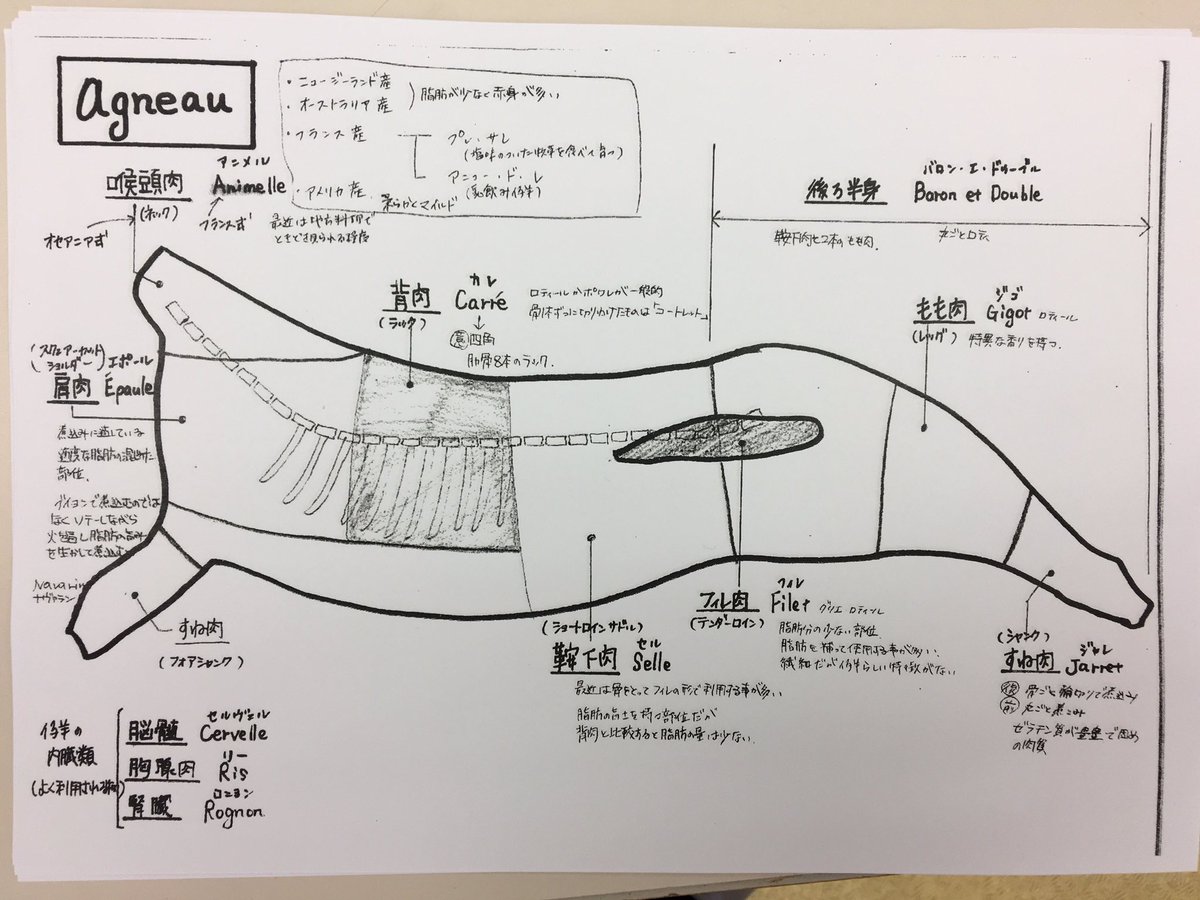 Agneau
・ニュージーランド産
・オーストラリア産
脂肪が少なく赤身が多い
・フランス産
プレ・サレ
(塩味のついた牧草を食べて育つ)
アニョー・ド・レ
(乳飲み仔羊)
・アメリカ産
柔らかくマイルド
喉頭肉
(ネック)
アニメル
Animelle
フランス式
オセアニア式
最近は
後ろ半身
バロン・エ・ドゥーブル
Baron et Double
鞍下肉と2本のもも肉.
丸ごとロティ
背肉
(ラック)
カレ
Carré
意 四角
肋骨8本のラック.
ロティールかポワレが一般的
骨1本ずつに切りわけたものは「コートレット」
もも肉
(レッグ)
ジゴ
Gigot ロティール
特異な香りを持つ.
(スクエアーカット
ショルダー)
エポール
肩肉 Épaule
煮込みに適している
適度な脂肪の混ざった
部位.
ブイヨンで煮込むのでは
なくソテーしながら
を生かして煮込む
Navarin
ナヴァラン
すね肉
(フォアシャンク)
(ショートロインサドル)
鞍下肉
セル
Selle
最近は骨をとってフィレの形で利用する事が多い
脂肪の旨味を持つ部位だが
背肉と比較すると脂肪の量は少ない.
フィレ肉
(テンダーロイン)
フィレ
Filet グリエ ロティール
脂肪分の少ない部位
脂肪を補って使用する事が多い.
繊細だが仔羊らしい特徴がない
(シャンク)
すね肉
ジャレ
Jarret
後 骨ごと輪切りで煮込み
前 丸ごと煮こみ
ゼラチン質が豊富で固め
の肉質
仔羊の
内臓類
(よく利用される
脳髄
セルヴェル
Cervelle
胸腺肉
リー
Ris
腎臓
ロニョン
Rognon.